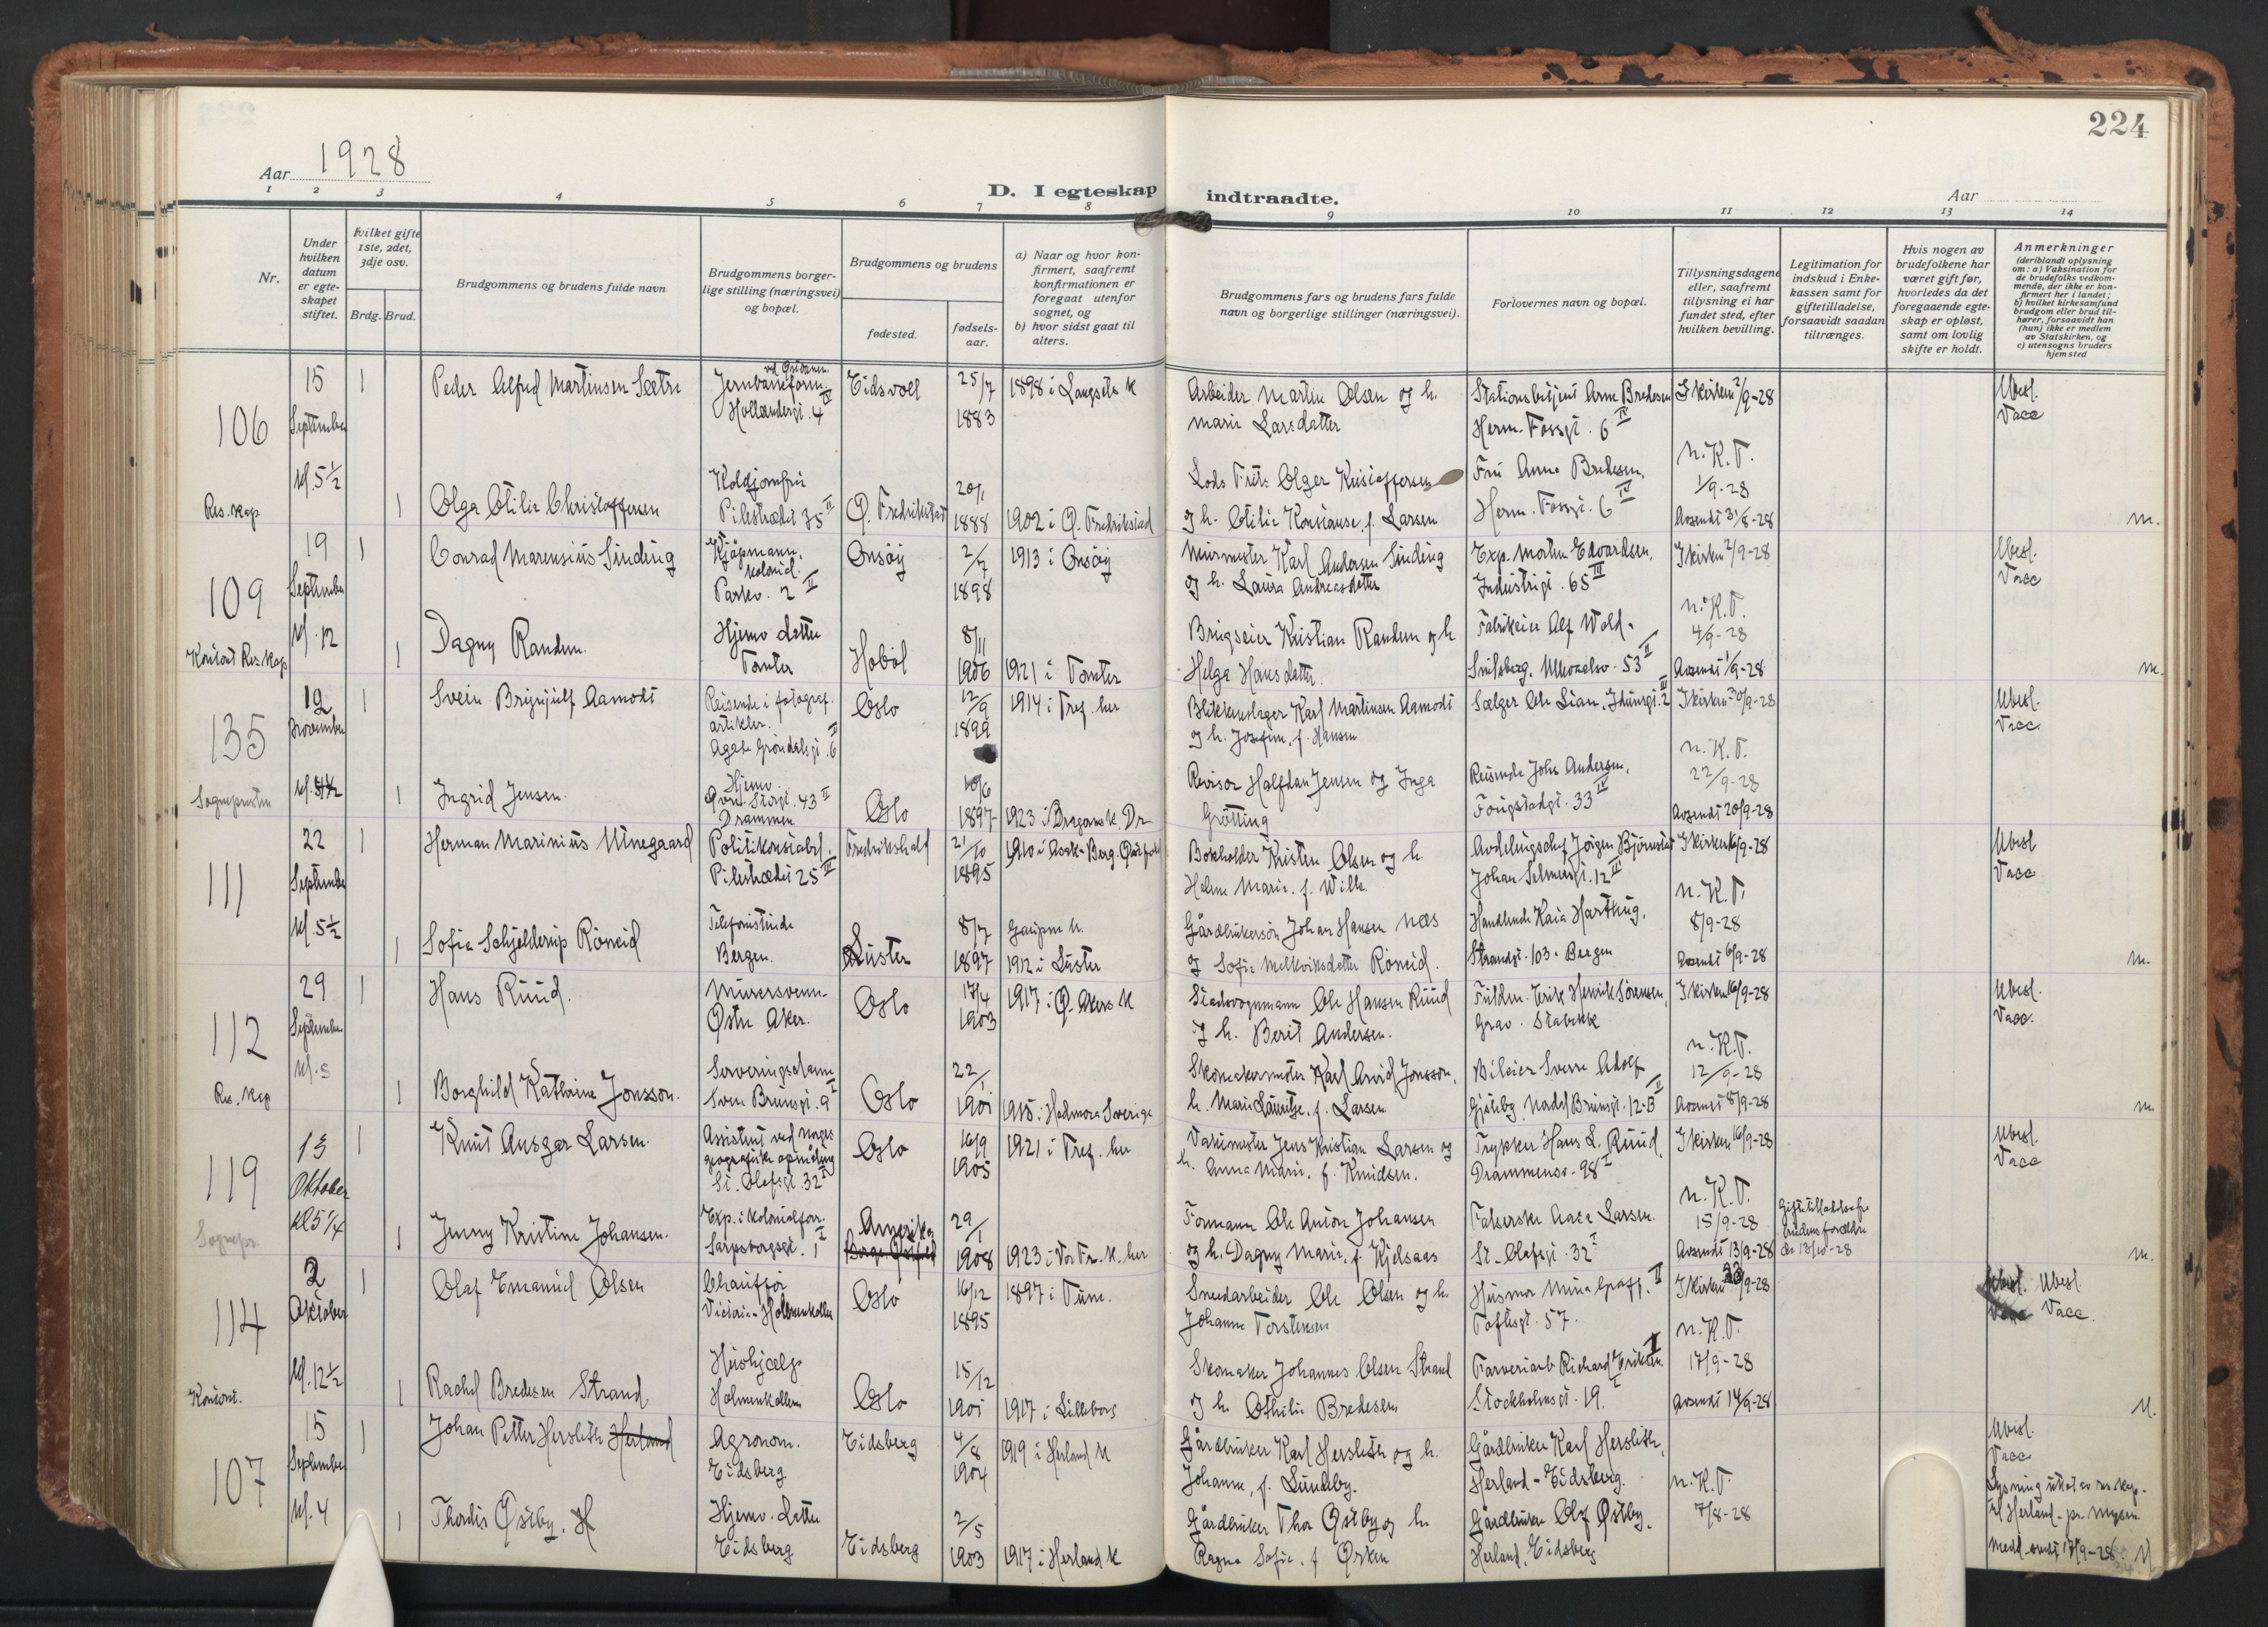 224
Aar 1928
D. I egteskap indtraadte.
Aar
1 2 3 4 5 6 7 8 9 10 11 12 13 14
Nr.
Under hvilken datum er egteskapet stiftet.
hvilket gifte 1ste, 2det, 3dje osv.
Brdg. Brud.
Brudgommens og brudens fulde navn
Brudgommens borgerlige stilling (næringsvei) og bopæl.
Brudgommens og brudens
fødested.
fødselsaar.
a) Naar og hvor konfirmert, saafremt konfirmationen er foregaat utenfor sognet, og
b) hvor sidst gaat til alters.
Brudgommens fars og brudens fars fulde navn og borgerlige stillinger (næringsvei).
Forlovernes navn og bopæl.
Tillysningsdagene eller, saafremt tillysning ei har fundet sted, efter hvilken bevilling.
Legitimation for indskud i Enkekassen samt for giftetilladelse, forsaavidt saadan tiltrænges.
Hvis nogen av brudefolkene har været gift før, hvorledes da det foregaaende egteskap er opløst, samt om lovlig skifte er holdt.
Anmerkninger
(deriblandt oplysning om: a) Vaksination for de brudefolks vedkommende, der ikke er konfirmert her i landet;
b) hvilket kirkesamfund brudgom eller brud tilhører, forsaavidt han (hun) ikke er medlem av Statskirken, og
c) utensogns bruders hjemsted
106 15 September kl. 5½ Res. kap.
1 Peder Alfred Martinsen Sætre
Hollændergt. 4 IV
Eidsvoll 25/7 1883 1898 i Langsets k
Arbeider Martin Olsen og h.
Marie Larsdatter
Stationsbetjent Arne Bredesen
Herm. Fossgt. 6 IV
I kirken 2/9-28
Ubesl.
Vacc
1 Olga Otilie Christoffersen
Pilestrædet 35 II
Ø. Fredrikstad 20/1 1888 1902 i Ø. Fredrikstad
Lods Frits Olger Kristoffersen
og h. Otilie Konstanse, f. Larsen
Fru Anna Bredesen,
Herm. Fossgt. 6 IV
n.K.T.
1/9-28
Avsendt 31/8-28
m.
109 19 September kl. 12 Kontort Res. kap
1 Conrad Marensius Sinding
Kjøpmann, kolonial.
Parkv. 2 II
Onsøy 2/7 1898 1913 i Onsøy
Murmester Karl Andersen Sinding
og h. Laura Andreasdatter
Exp. Morten Edvardsen,
Industrigt. 65 III
I kirken 2/9-28
Ubesl.
Vacc
1 Dagny Randem.
Hjemv. datter
Tomter
Hobøl 8/11 1906 1921 i Tomter
Brugseier Kristian Randem og h
Helga Hansdatter.
Fabrikeier Alf Wold.
Ullevaalsv. 53 II
n.K.T.
4/9-28
Avsendt 1/9-28
m.
135 12 November Sognepresten
1 Svein Brynjulf Aamodt
Reisende i fotograf. artikler.
Agate Grøndalsgt. 6 II
Oslo 12/9 1899 1914 i Tref. her
Blikkenslager Karl Martinsen Aamodt
og h. Josefine, f. Hansen
Sælger Ole Lian, Idunsgt. 2 III
I kirken 30/9-28
Ubesl.
Vacc.
1 Ingrid Jensen.
Hjemv.
Øvre Storgt. 43 II
Drammen
Oslo 10/6 1897 1923 i Bragernes k. Dr
Revisor Halfdan Jensen og Inga
Grøtting
Reisende Johs Andersen,
Fougstadgt. 33 IV
n.K.T.
22/9-28
Avsendt 20/9-28
111 22 September kl. 5½
1 Herman Marinius Unnegaard
Politikonstabel.
Pilestrædet 25 III
Fredrikshald 21/10 1895
Bokholder Kristen Olsen og h.
Helene Marie. f. Wilh.
Avdelingschef Jørgen Bjørnstad
Johan Selmersgt. 12 III
I kirken 16/9-28
Ubesl
Vacc
1 Sofie Schjelderup Røneid
Telefonistinde
Bergen.
Luster 8/7 1897 Gaupne k.
1912 i Luster
Gårdbrukersøn Johan Hansen Næs
og Sofie Melkviksdatter Røneid.
Handlende Kaia Harthug,
Strandgt. 103. Bergen
n.K.T.
8/9-28
Avsendt 6/9-28
m.
112 29 September Res. Kap
1 Hans Ruud.
Murersvenn
Østre Aker.
Oslo 17/4 1903 1917 i Ø. Akers k
Stadsvognmann Ole Hansen Ruud
og h. Berit Andersen.
Fuldm. Erik Henrik Sørensen,
Grav. Stabekk
I kirken 16/9-28
Ubesl.
Vacc.
1 Borghild Kathrine Jonsson.
Serveringsdame
Sven Brunsgt. 9 I
Oslo 22/1 1901 1915 i Hedmora Sverige
Skomakermester Karl Arvid Jonsson,
h. Marie Lauritze, f. Larsen
Bileier Sverre Adolf
Gjølby. Nordal Brunsgt. 12.B II
n.K.T.
12/9-28
Avsendt 8/9-28
m.
119 13 Oktober Kl 5¼ Sognepr.
1 Knut Ansgar Larsen.
Assistent ved Norges geografiske opmåling
St. Olafsgt. 32 I
Oslo 16/9 1905 1921 i Tref. her
Vaktmester Jens Kristian Larsen og
h. Anna Marie, f. Knudsen.
Trykker Hans L. Ruud,
Drammensv. 98 I
I kirken 16/9-28
Ubesl.
Vacc
1 Jenny Kristine Johansen.
Exp. i kolonialforr.
Sarpsborggt. 1 I
Amerika
29/1 1908 1923 i Vor Fr. k. her
Formann Ole Anton Johansen
og h. Dagny Marie, f. Kjelsaas
Aase Larsen.
St. Olafsgt. 32 I
n.K.T.
15/9-28
Avsendt 13/9-28
Giftetilladelse fra brudens forældre da 13/10-28
m.
114 2 Oktober kl. 12½ Kontort.
1 Olaf Emanuel Olsen
Chauffør
Victoria-Holmenkollen
Oslo 16/12 1895 1897 i Tune.
Smedarbeider Ole Olsen og h.
Johanne Torstensen
Husmor Mina Graff. II
Toftesgt. 57.
I kirken 23/9-28
Ubesl.
Vacc.
1 Rachel Bredesen Strand
Hushjælp
Holmenkollen
Oslo 15/12 1901 1917 i Lilleborg
Skomaker Johannes Olsen Strand
og h. Othilie Bredesen
Farveriarb Richard Eriksen.
Stockholmsgt. 19 I
n.K.T.
17/9-28
Avsendt 14/9-28
M.
107 15 September kl. 4
1 Johan Petter Hersleth Herland
Agronom.
Eidsberg
Eidsberg 4/8 1904 1919 i Herland k
Gårdbruker Karl Hersleth og h.
Johanne, f. Lundeby.
Gårdbruker Karl Hersleth,
Herland - Eidsberg.
Ubesl.
Vacc
1 Thordis Østby. H
Hjemv. datter
Eidsberg
Eidsberg 2/5 1903 1917 i Herland k
Gårdbruker Thor Østby og h.
Ragna Sofie. f Ørken
Gårdbruker Olaf Østby.
Herland. Eidsberg
n.K.T
7/8-28
Lysning utført av res. kap.
til Herland - pr. Mysen
Medd. sendt 17/9-28
M